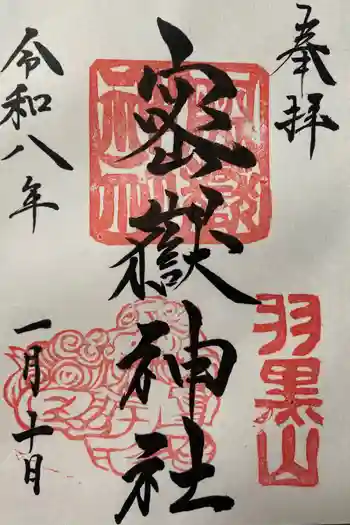 奉拝
密嶽神社
羽黒山
令和八年
一月十日